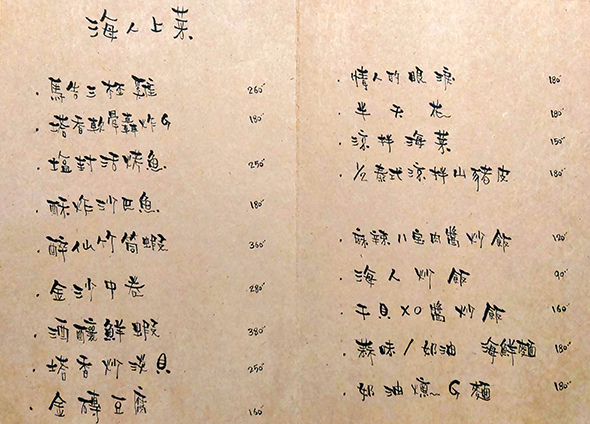 海人上菜
馬告三杯雞 260
塔香軟骨轟炸G 180
塩封活烤魚 250
酥炸沙巴魚 180
醉仙竹筒蝦 360
金沙中卷 280
酒釀鮮蝦 380
塔香炒淡貝 250
金磚豆腐 160
情人的眼淚 180
半天花 180
涼拌海菜 150
泰式涼拌山豬皮 180
麻辣小魚肉醬炒飯 120
海人炒飯 90
干貝XO醬炒飯 160
蒜味/奶油 海鮮麵 180
奶油燻G麵 180